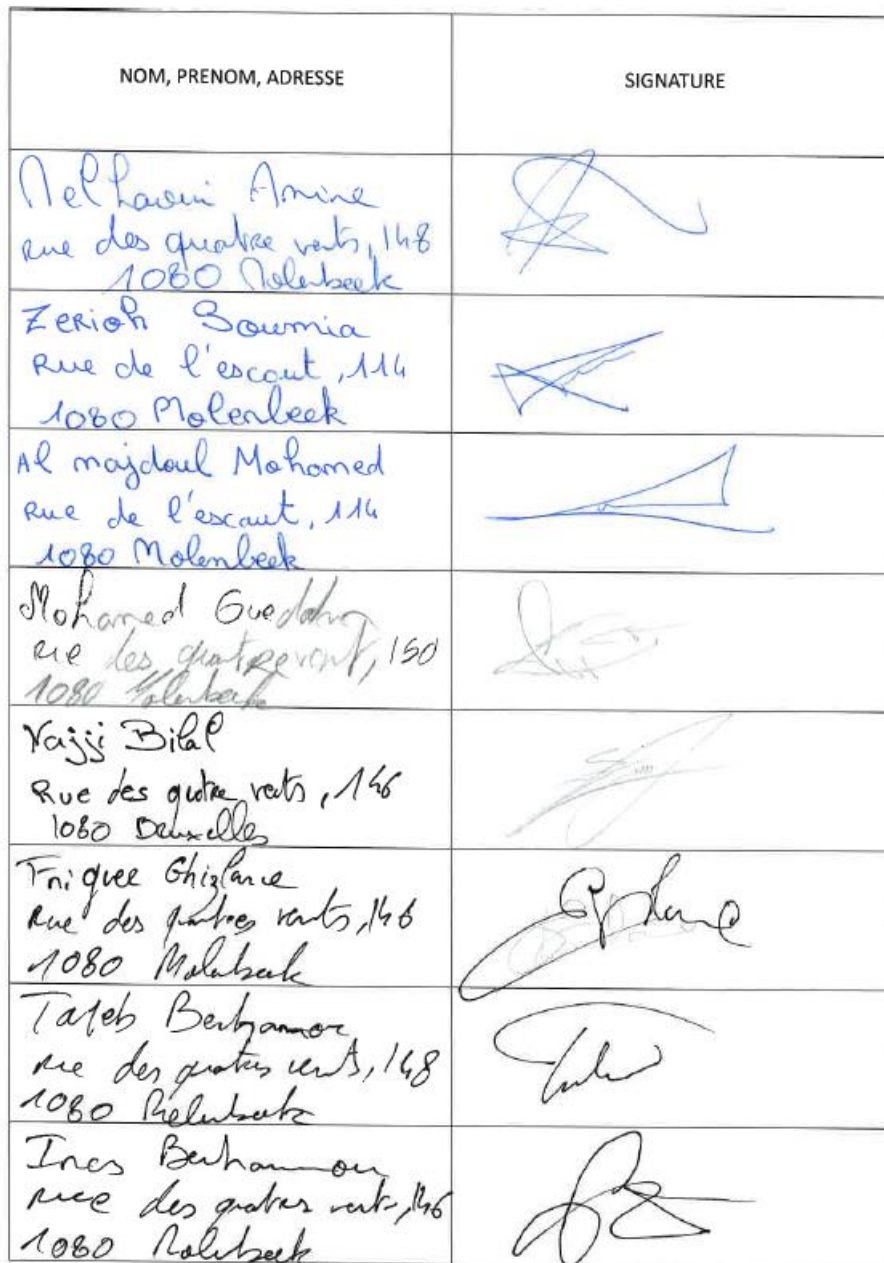 NOM, PRENOM, ADRESSE
SIGNATURE
Melhaoui Amine
rue des quatre vents, 148
1080 Molenbeek
Zerioh Soumia
Rue de l'escaut, 114
1080 Molenbeek
Al majdoul Mohamed
rue de l'escaut, 114
1080 Molenbeek
Mohamed
rue des quatre vent, 150
1080 Molenbeek
Bilal
Rue des quatre vents, 146
1080 Bruxelles
Ghizlane
Rue des quatres vents, 146
1080 Molenbeek
Tayeb
rue des quatres vents, 148
1080 Molenbeek
Ines
rue des quatres vents, 146
1080 Molenbeek